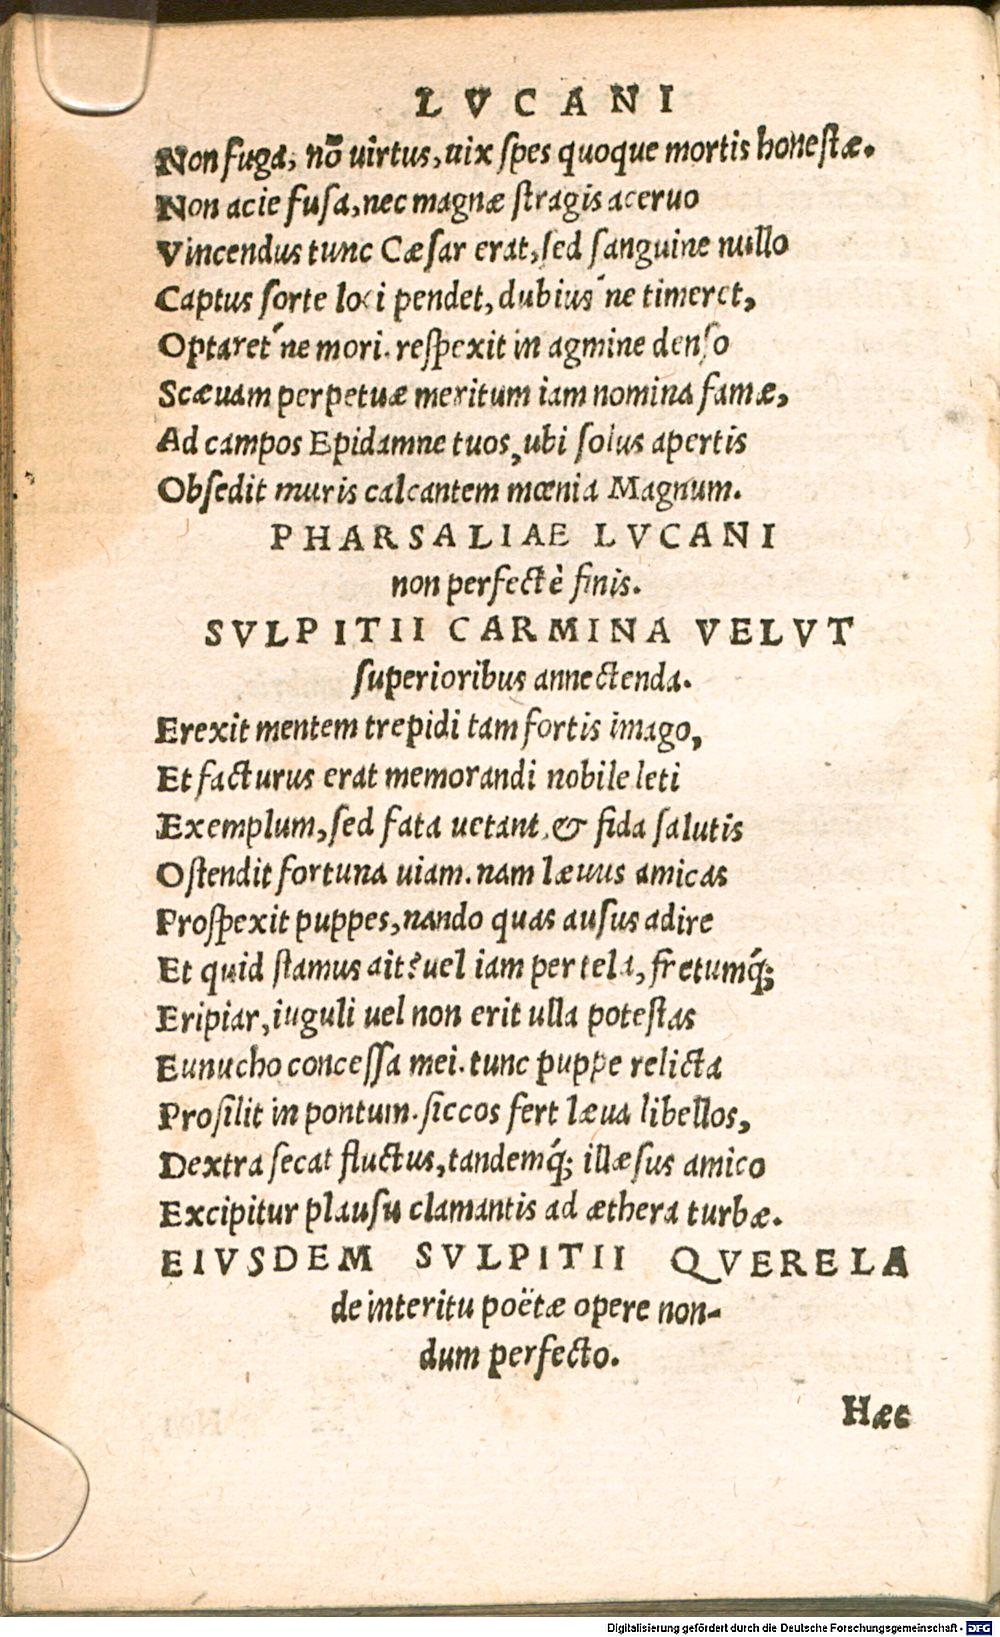 LVCANI
Non fuga, nō uirtus, uix spes quoque mortis honestæ.
Non acie fusa, nec magnæ stragis aceruo
Vincendus tunc Cæsar erat, sed sanguine nullo
Captus sorte loci pendet, dubius´ne timeret,
Optaret´ne mori. respexit in agmine denso
Scæuam perpetuæ meritum iam nomina famæ,
Ad campos Epidamne tuos, ubi solus apertis
Obsedit muris calcantem mœnia Magnum.
PHARSALIAE LVCANI
non perfectè finis.
SVLPITII CARMINA VELVT
superioribus annectenda.
Erexit mentem trepidi tam fortis imago,
Et facturus erat memorandi nobile leti
Exemplum, sed fata uetant, & fida salutis
Ostendit fortuna uiam. nam læuus amicas
Prospexit puppes, nando quas ausus adire
Et quid stamus ait? uel iam per tela, fretumq́;
Eripiar, iuguli uel non erit ulla potestas
Eunucho concessa mei. tunc puppe relicta
Prosilit in pontum. siccos fert læua libellos,
Dextra secat fluctus, tandemq́; illæsus amico
Excipitur plausu clamantis ad æthera turbæ.
EIVSDEM SVLPITII QVERELA
de interitu poëtæ opere non-
dum perfecto.
Hæc
Digitalisierung gefördert durch die Deutsche Forschungsgemeinschaft - DFG